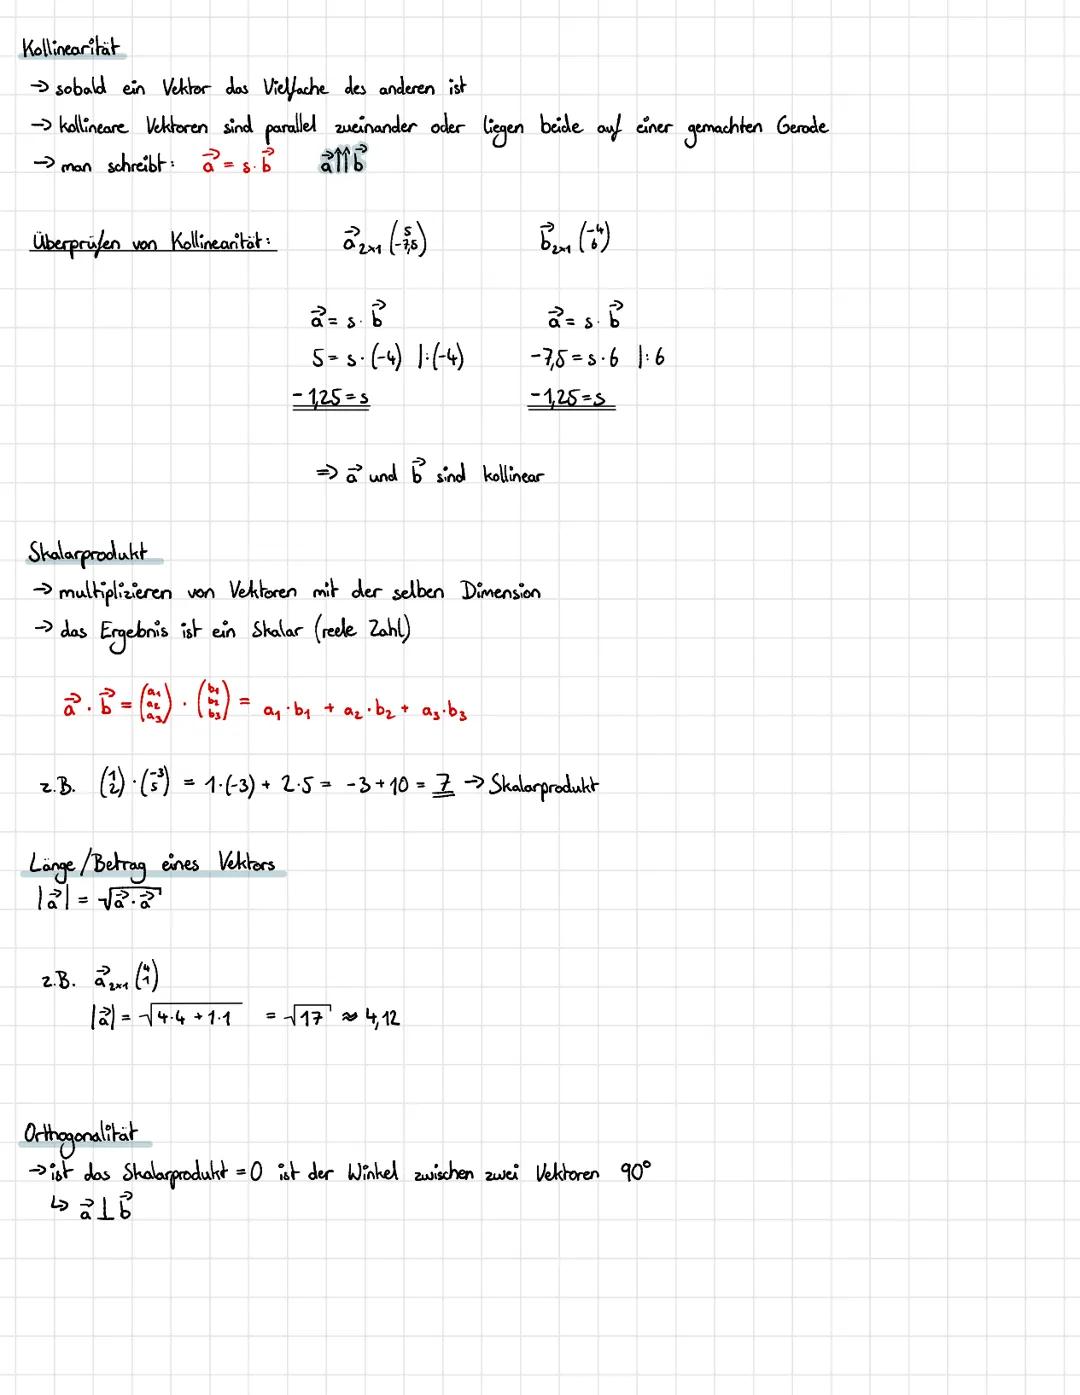 Kollinearität
→ sobald ein Vektor das Vielfache des anderen ist
→ kollineare Vektoren sind parallel zueinander oder liegen beide auf einer gemachten Gerade
→ man schreibt: a⃗ = s · b⃗   a⃗ ↑↑ b⃗
Überprüfen von Kollinearität:   a⃗ 2×1 (5 / -7,5)   b⃗ 2×1 (-4 / 6)
a⃗ = s · b⃗   a⃗ = s · b⃗
5 = s · (-4) |:(-4)   -7,5 = s · 6 |:6
-1,25 = s   -1,25 = s
⇒ a⃗ und b⃗ sind kollinear
Skalarprodukt
→ multiplizieren von Vektoren mit der selben Dimension
→ das Ergebnis ist ein Skalar (reele Zahl)
a⃗ · b⃗ = (a₁ / a₂ / a₃) · (b₁ / b₂ / b₃) = a₁·b₁ + a₂·b₂ + a₃·b₃
z.B. (1 / 2) · (-3 / 5) = 1·(-3) + 2·5 = -3+10 = 7 → Skalarprodukt
Länge/Betrag eines Vektors
|a⃗| = √(a⃗ · a⃗)
z.B. a⃗ 2×1 (4 / 1)
|a⃗| = √(4·4 + 1·1) = √17 ≈ 4,12
Orthogonalität
→ ist das Skalarprodukt = 0 ist der Winkel zwischen zwei Vektoren 90°
↳ a⃗ ⊥ b⃗